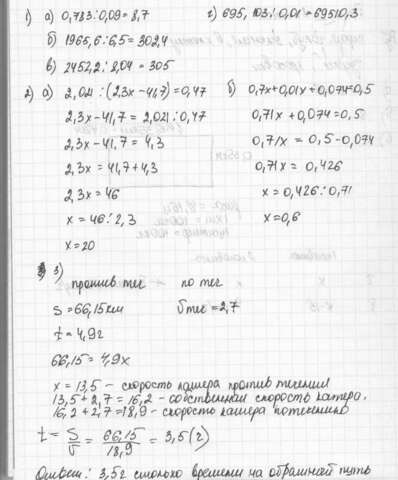 1) а) 0,783:0,09 = 8,7 г) 695,103:0,01 = 69510,3
б) 1965,6:6,5 = 302,4
в) 2452,2:8,04 = 305
2) а) 2,021:(2,3x-41,7)=0,47 б) 0,7x+0,01x+0,074=0,5
2,3x-41,7 = 2,021:0,47 0,71x + 0,074 = 0,5
2,3x-41,7 = 4,3 0,71x = 0,5-0,074
2,3x = 41,7+4,3 0,71x = 0,426
2,3x = 46 x = 0,426:0,71
x = 46:2,3 x=0,6
x=20
3)
против теч по теч
S = 66,15км υтеч = 2,7
t = 4,9г
66,15 = 4,9x
x = 13,5 - скорость катера против течения
13,5+2,7 = 16,2 - собственная скорость катера.
16,2+2,7=18,9 - скорость катера по течению
t = S/υ = 66,15/18,9 = 3,5(г)
Ответ: 3,5г столько времени на обратный путь